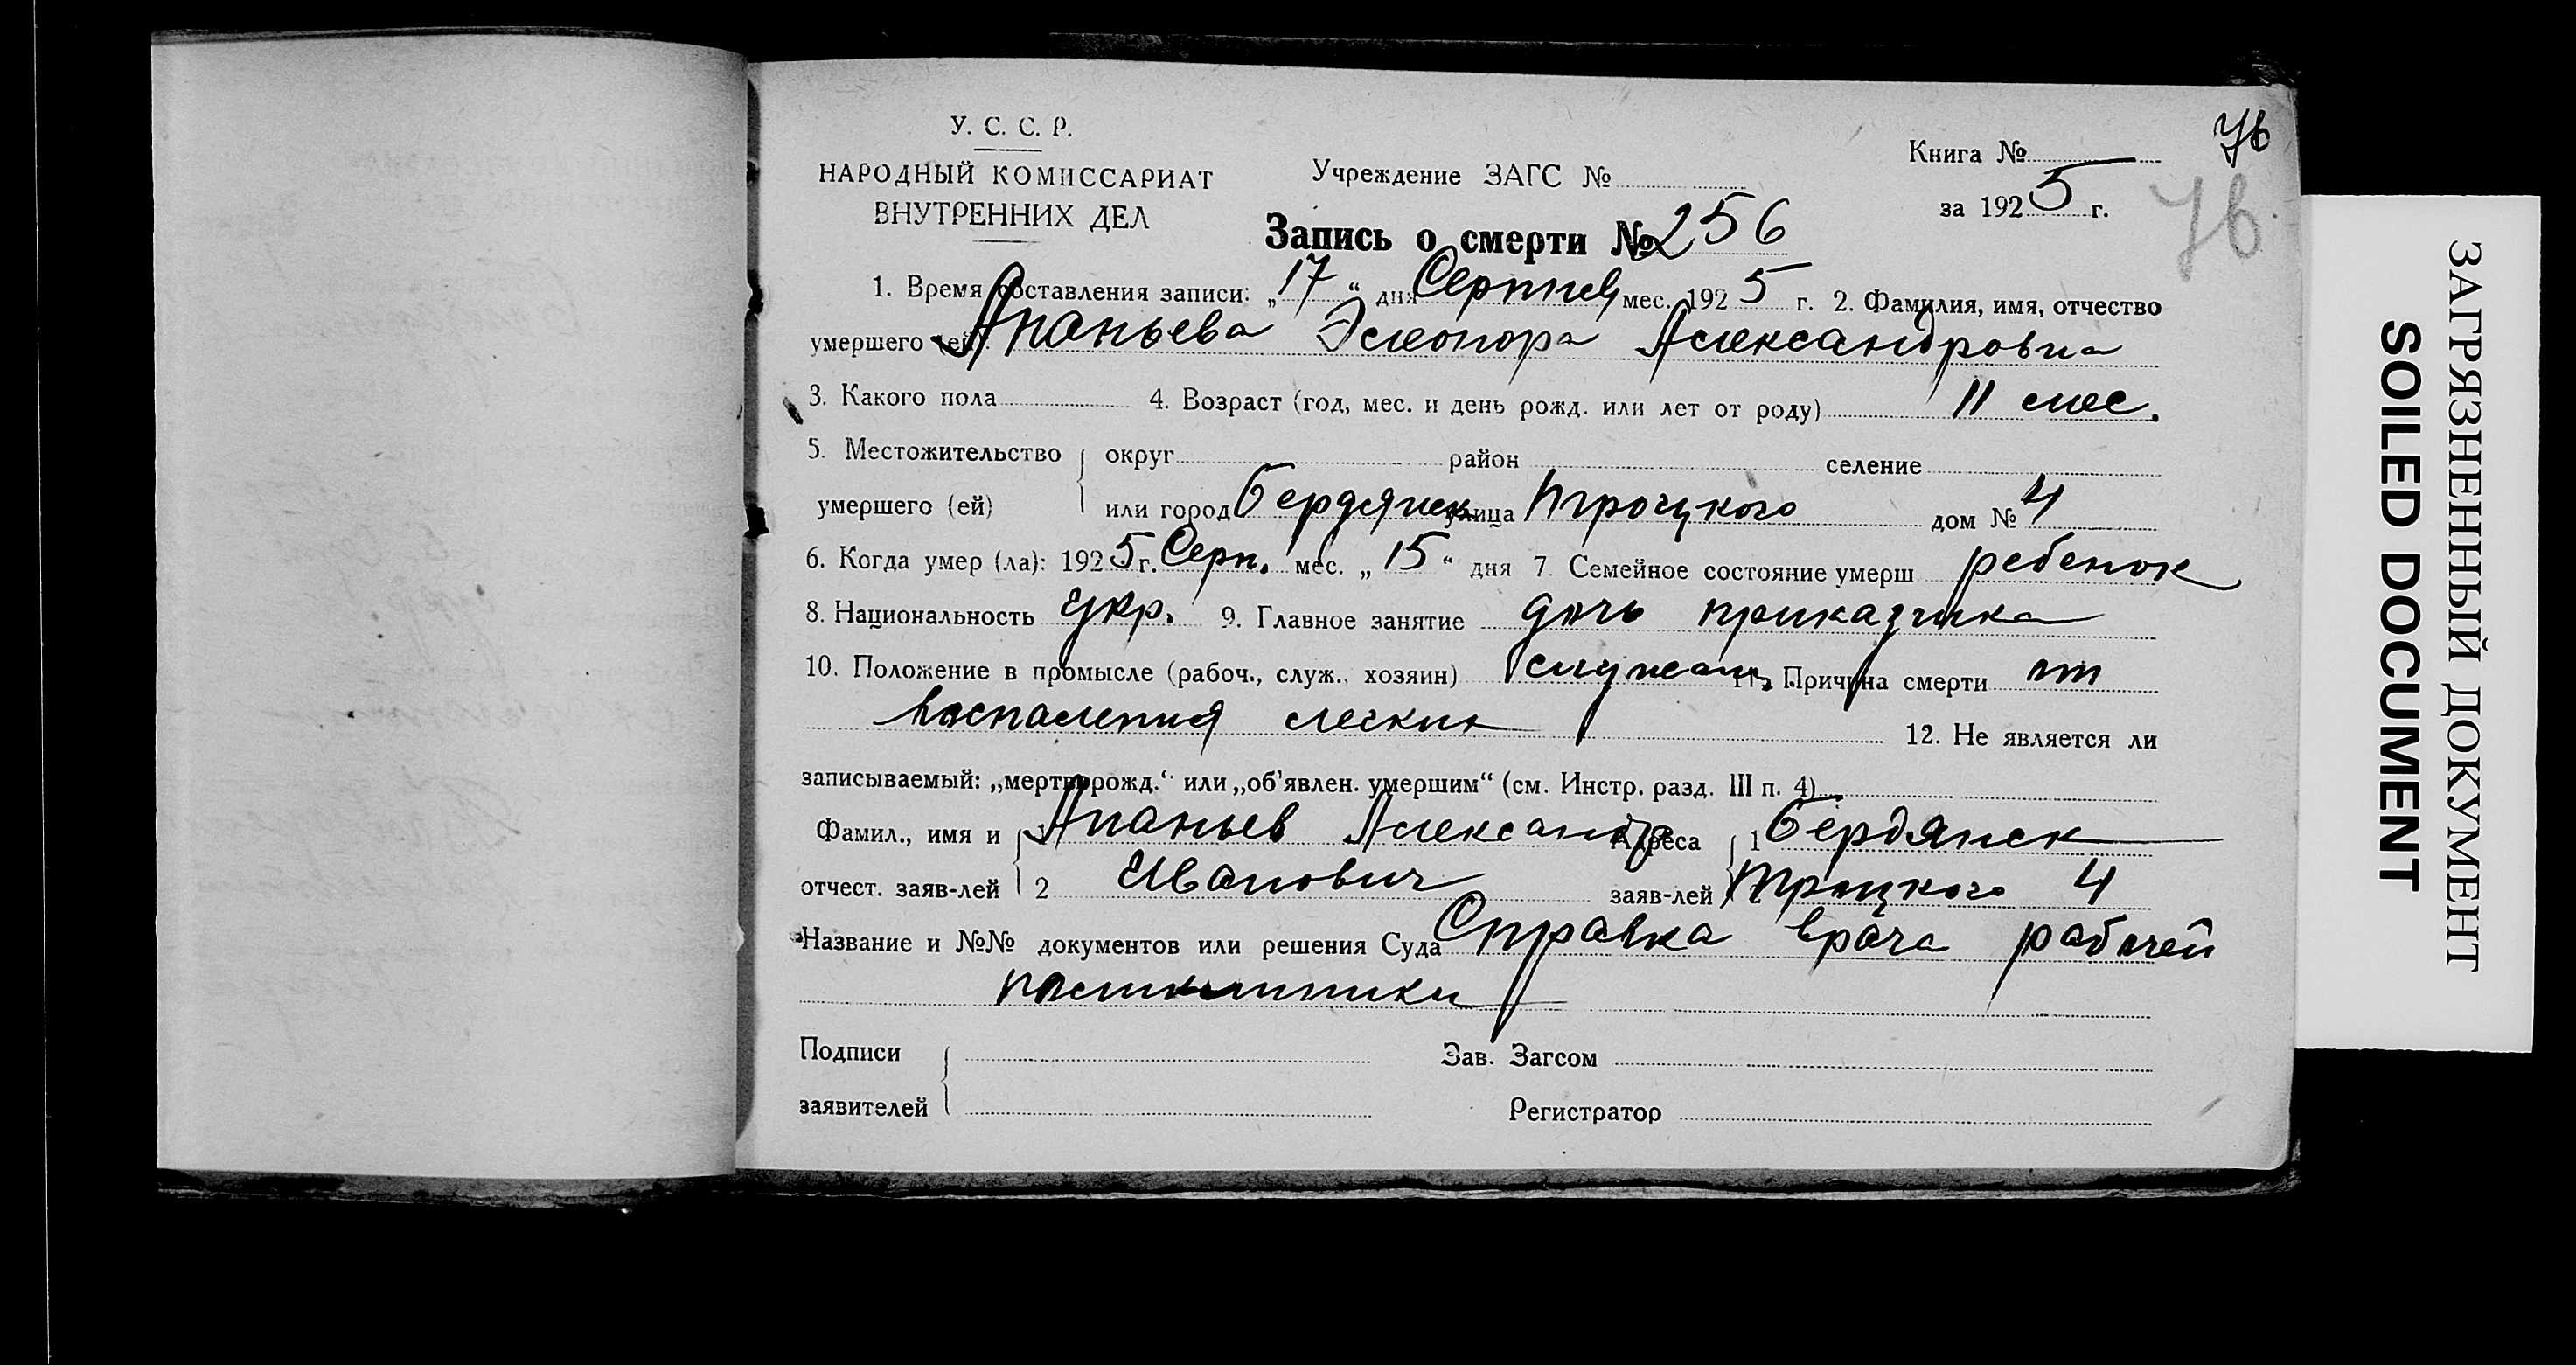 У. С. С. Р.
НАРОДНЫЙ КОМИССАРИАТ
ВНУТРЕННИХ ДЕЛ
Учреждение ЗАГС №
Книга №
за 1925 г.
76
76.
Запись о смерти № 256
1. Время составления записи: „17“ дня Серпня мес. 1925 г. 2. Фамилия, имя, отчество
умершего (ей) Ананьева Элеонора Александровна
3. Какого пола 4. Возраст (год, мес. и день рожд. или лет от роду) 11 мес.
5. Местожительство округ район селение
умершего (ей) или город Бердянск улица Троцкого дом № 4
6. Когда умер (ла): 1925 г. Серп. мес. „15“ дня 7 Семейное состояние умерш ребенок
8. Национальность укр. 9. Главное занятие дочь приказчика
10. Положение в промысле (рабоч., служ., хозяин) служащ. 11. Причина смерти от
воспаления легких 12. Не является ли
записываемый: „мертворожд.“ или „об'явлен. умершим“ (см. Инстр. разд. III п. 4)
Фамил., имя и 1 Ананьев Александр Адреса 1 Бердянск
отчест. заяв-лей 2 Иванович заяв-лей 2 Троцкого 4
Название и №№ документов или решения Суда Справка врача рабочей
поликлиники
Подписи Зав. Загсом
заявителей Регистратор
ЗАГРЯЗНЕННЫЙ ДОКУМЕНТ
SOILED DOCUMENT